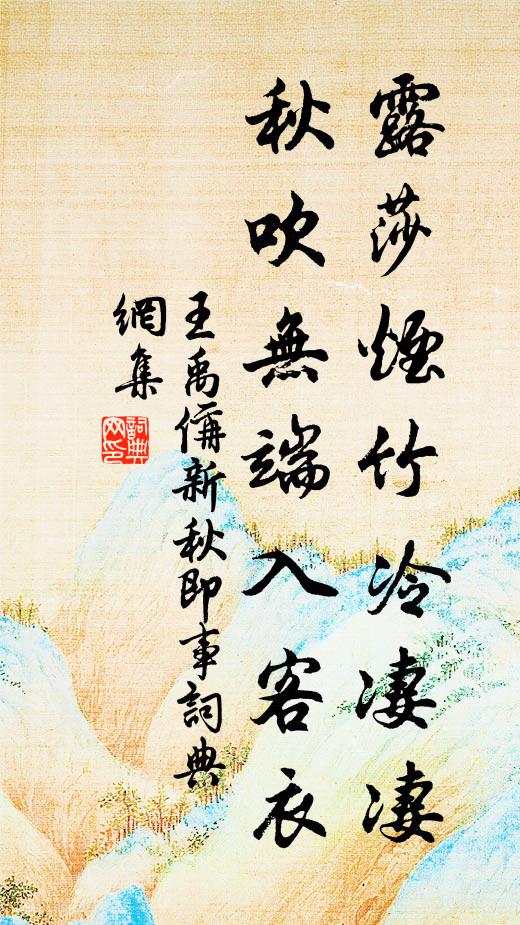 露莎煙竹冷凄凄
秋吹無端入客衣
王禹偁新秋即事詞典
網集
詞典
网印